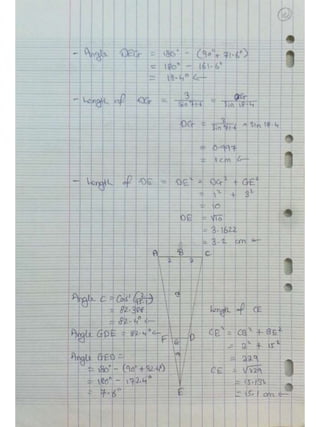 10
- Angle DEG = 180° - (90° + 71.6°)
= 180° - 161.6°
= 18.4° ←
- Length of DG = 3 / Sin 71.6 = DG / Sin 18.4
DG = 3 / Sin 71.6 × Sin 18.4
= 0.997
= 1cm ←
- Length of DE = DE² = DG² + GE²
= 1² + 3²
= 10
DE = √10
= 3.1622
= 3.2 cm ←
A B C
2 2
Angle C = Cos⁻¹
= 82.4° ←
Angle GDE = 82.4° ←
Angle GED =
= 180° - (90° + 82.4°)
= 180° - 172.4°
= 7.6°
F G D
E
Length of CE
CE² = CB² + BE²
= 2² + 15²
= 229
CE = √229
= 15.132
= 15.1 cm ←